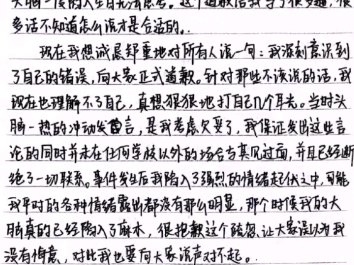 大脑一度陷入空白无法思考。这个道歉信我写了很多遍,很
多话不知道怎么说才是合适的。
现在我想诚恳郑重地对所有人说一句:我深刻意识到
了自己的错误,向大家正式道歉。针对那些不该说的话,我
现在也理解不了自己,真想狠狠地打自己几个耳光。当时头
脑一热的冲动发言,是我考虑欠妥了,我保证发出这些言
论的同时并未在任何学校以外的场合与其见过面,并且已经断
绝了一切联系。事件发生后我陷入了强烈的情绪起伏之中,可能
我平时的各种情绪露出都没有那么明显,那个时候我的大
脑真的已经陷入了麻木,很抱歉这个疏忽让大家误以为我
没有悔意,对比我也要向大家说声对不起。